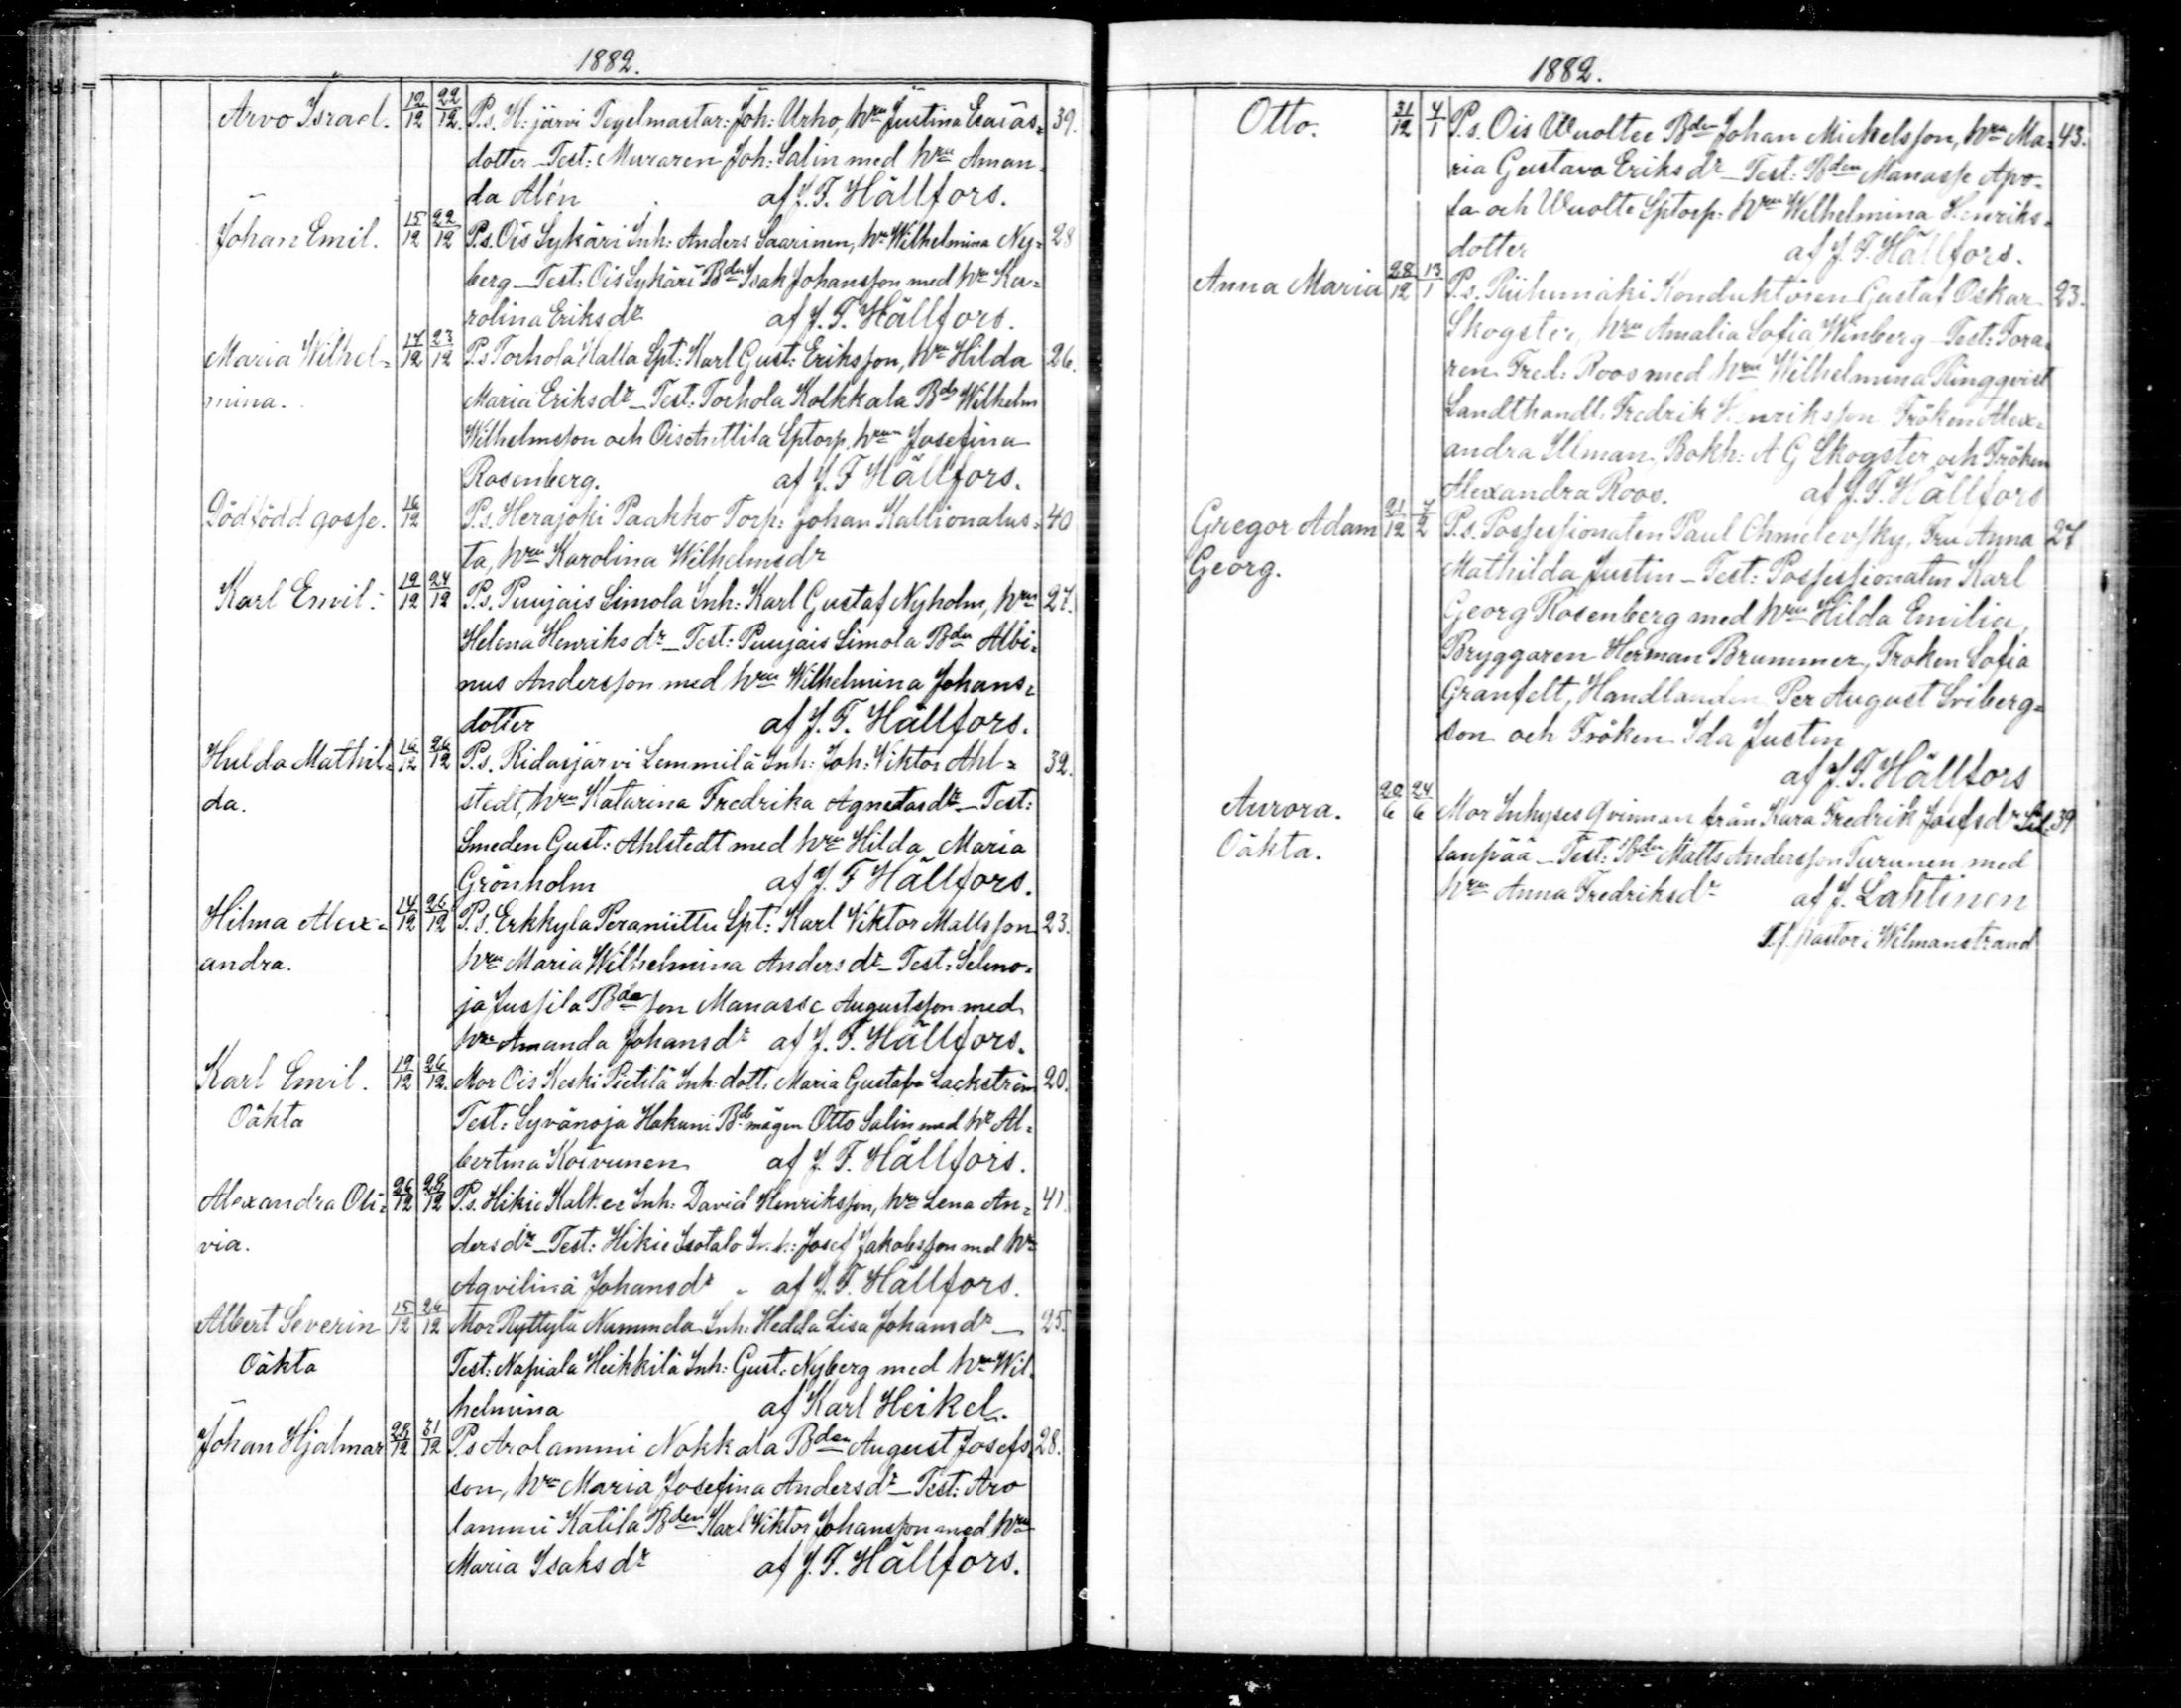 1882.
Arvo Israel. 12/12 22/12. P.s. H:järvi Tegelmästar: Joh: Urho, hru Justina Esaias= 39.
dotter – Test: Muraren Joh: Salin med hru Aman=
da Alén af J. F. Hällfors.
Johan Emil. 15/12 22/12 P.s. Ois Sykäri Inh: Anders Saarinen, hr Wilhelmina Ny= 28
berg – Test: Ois Sykäri Bdn Isak Johansson med hru Ka=
rolina Eriksdr af J. F. Hällfors.
Maria Wilhel= 17/12 23/12 P.s Torhola Kalla Spt: Karl Gust: Eriksson, hru Hilda 26.
mina. Maria Eriksdr – Test: Torhola Kolkkala Bdn Wilhelm
Wilhelmsson och Ois Anttila Sptorp. hrun Josefina
Rosenberg. af J. F Hällfors.
Dödfödd gosse. 16/12 P.s. Herajoki Paakko Torp: Johan Kallionalus= 40
ta, hru Karolina Wilhelmsdr
Karl Emil. 19/12 24/12 P.s. Puujais Simola Inh: Karl Gustaf Nyholm, hru 27.
Helena Henriksdr – Test: Puujais Simola Bdn Albi=
nus Andersson med hru Wilhelmina Johans=
dotter af J. F. Hällfors.
Hulda Mathil= 16/12 26/12 P.s. Ridasjärvi Lemmilä Inh: Joh: Viktor Ahl= 32.
da. stedt, hru Katarina Fredrika Agnetasdr – Test:
Smeden Gust: Ahlstedt med hru Hilda Maria
Grönholm af J. F Hällfors.
Hilma Alex= 14/12 26/12 P.s. Erkkylä Peraniittu Spt: Karl Viktor Mattsson 23.
andra. hru Maria Wilhelmina Andersdr – Test: Selmo=
ja Jussila Bda son Manasse Augustsson med
hru Amanda Johansdr af J. F. Hällfors.
Karl Emil. 19/12 26/12. Mor Ois Keski Pietilä Inh: dott: Maria Gustafva Lackström 20.
Oäkta Test: Syvänoja Hakuni Bde mågen Otto Salin med hr Al=
bertina Koivunen af J. F. Hällfors.
Alexandra Oli= 26/12 29/12 P.s. Hikiä Kalkee Inh: David Henriksson, hru Lena An= 41.
via. dersdr – Test: Hikiä Isotalo Inh: Josef Jakobsson med hru
Aqvilina Johansdr af J. F. Hällfors.
Albert Severin 15/12 26/12 Mor Ryttylä Nummela Inh: Hedda Lisa Johansdr – 25.
Oäkta Test: Napiala Heikkilä Inh: Gust: Nyberg med hru Wil
helmina af Karl Heikel.
Johan Hjalmar 28/12 31/12 P.s Arolammi Nokkala Bden August Josefs 28.
son, hru Maria Josefina Andersdr – Test: Aro
lammi Katila Bden Karl Viktor Johansson med hru
Maria Isaksdr af J. F. Hällfors.
1882.
Otto. 31/12 4/1 P.s. Ois Wuoltee Bden Johan Mickelsson, hru Ma= 43.
ria Gustava Eriksdr – Test: Bden Manasse Apo=
la och Wuolte Sptorp: hru Wilhelmina Henriks=
dotter af J. F. Hällfors.
Anna Maria 28/12 13/1 P.s. Riihimäki Konduktören Gustaf Oskar 23.
Skogster, hru Amalia Sofia Winberg – Test: Fora=
ren Fred: Roos med hru Wilhelmina Ringqvist
Landthandl: Fredrik Henriksson Fröken Alex=
andra Illman, Bokh: A G Skogster och Fröken
Alexandra Roos. af J. F. Hällfors
Gregor Adam 21/12 7/2 P.s. Possessionaten Paul Chmelevsky, Fru Anna 27
Georg. Mathilda Justin – Test: Possessionaten Karl
Georg Rosenberg med hru Hilda Emilia,
Bryggaren Herman Brummer, Fröken Sofia
Granfelt, Handlanden Per August Sviberg=
son och Fröken Ida Justin
af J. F. Hällfors
Aurora. 20/6 24/6 Mor Inhyses qvinnan från Kara Fredrik Josefsdr Sil 39
Oäkta. lanpää – Test: Bdn Matts Andersson Turunen med
hru Anna Fredriksdr af J. Lahtinen
T.f. pastor i Wilmanstrand